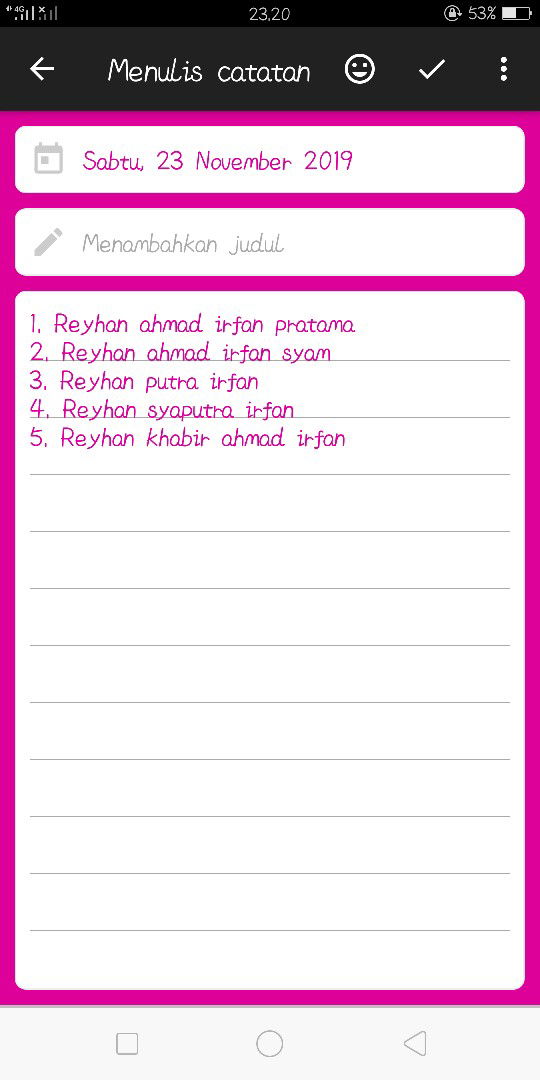 4G 23.20 53%
Menulis catatan
Sabtu, 23 November 2019
Menambahkan judul
1. Reyhan ahmad irfan pratama
2. Reyhan ahmad irfan syam
3. Reyhan putra irfan
4. Reyhan syaputra irfan
5. Reyhan khabir ahmad irfan